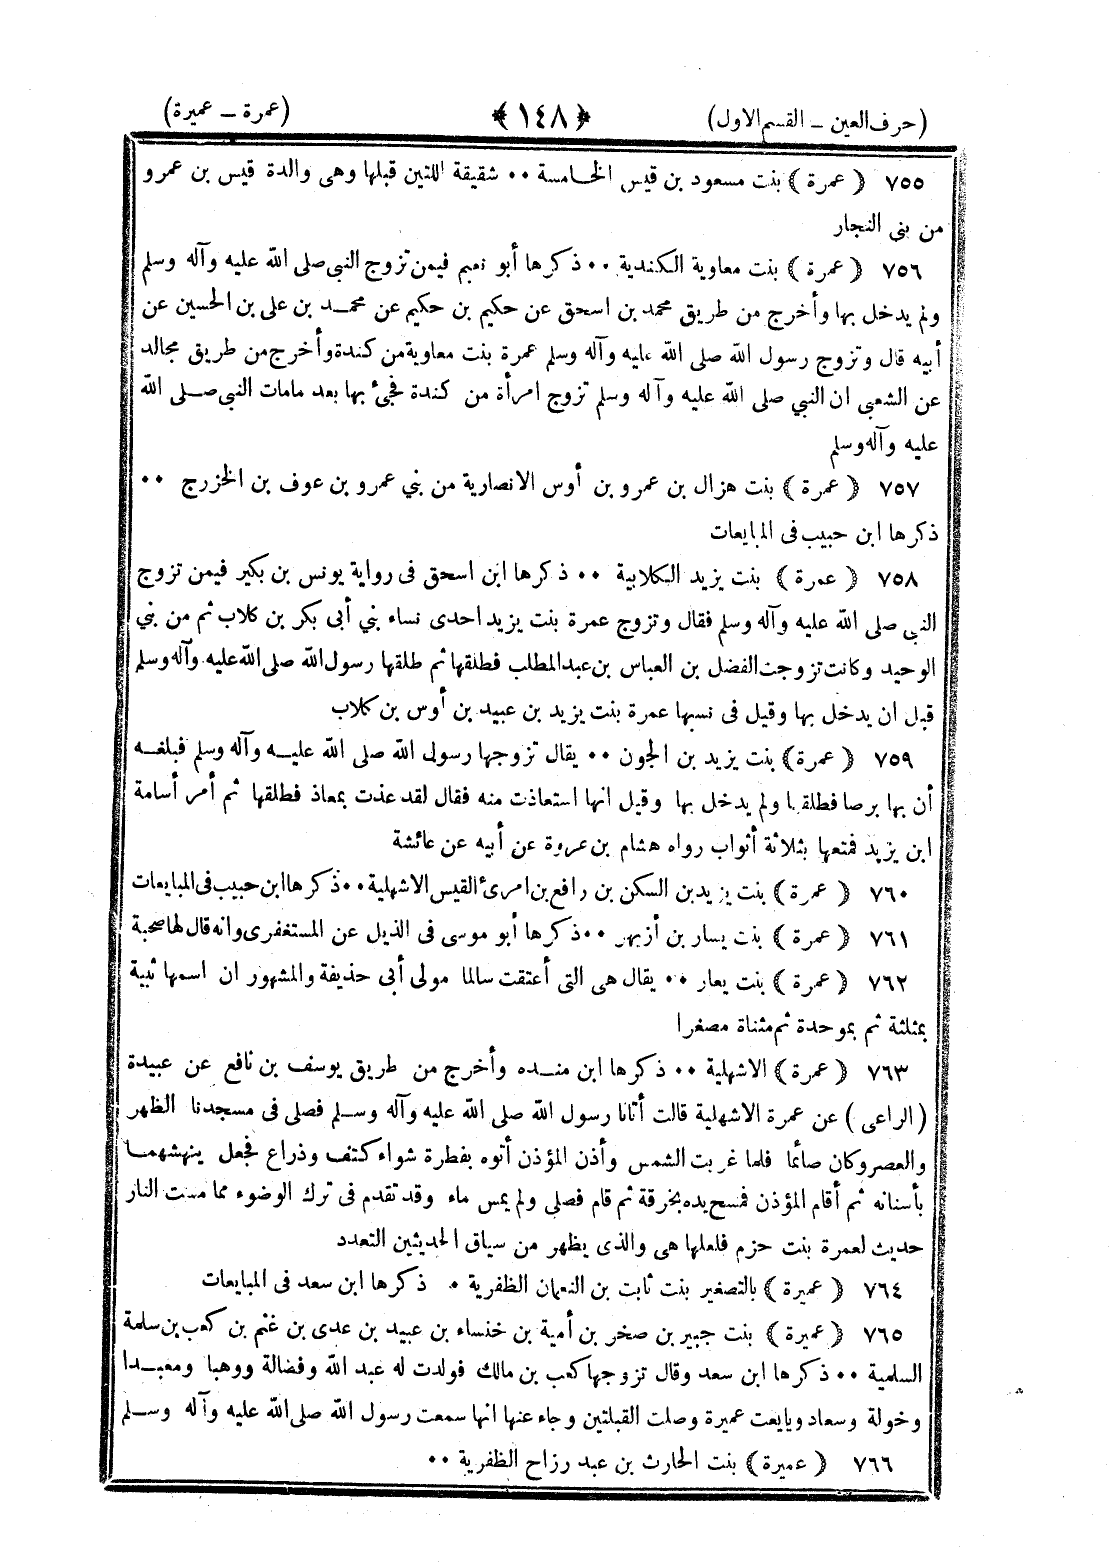 (حرف العين – القسم الاول) ﴿١٤٨﴾ (عمرة – عميرة)
٧٥٥ ﴿ عمرة ﴾ بنت مسعود بن قيس الخامسة ٠٠ شقيقة اللتين قبلها وهى والدة قيس بن عمرو
من بنى النجار
٧٥٦ ﴿ عمرة ﴾ بنت معاوية الكندية ٠٠ ذكرها أبو نعيم فيمن تزوج النبى صلى الله عليه وآله وسلم
ولم يدخل بها وأخرج من طريق محمد بن اسحق عن حكيم بن حكيم عن محمد بن على بن الحسين عن
أبيه قال وتزوج رسول الله صلى الله عليه وآله وسلم عمرة بنت معاوية من كندة وأخرج من طريق مجالد
عن الشعبى ان النبي صلى الله عليه وآله وسلم تزوج امرأة من كندة فجئ بها بعد مامات النبى صلى الله
عليه وآله وسلم
٧٥٧ ﴿ عمرة ﴾ بنت هزال بن عمرو بن أوس الانصارية من بني عمرو بن عوف بن الخزرج ٠٠
ذكرها ابن حبيب فى المبايعات
٧٥٨ ﴿ عمرة ﴾ بنت يزيد الكلابية ٠٠ ذكرها ابن اسحق فى رواية يونس بن بكير فيمن تزوج
النبى صلى الله عليه وآله وسلم فقال وتزوج عمرة بنت يزيد احدى نساء بني أبى بكر بن كلاب ثم من بني
الوحيد وكانت تزوجت الفضل بن العباس بن عبد المطلب فطلقها ثم طلقها رسول الله صلى الله عليه وآله وسلم
قبل ان يدخل بها وقيل فى نسبها عمرة بنت يزيد بن عبيد بن أوس بن كلاب
٧٥٩ ﴿ عمرة ﴾ بنت يزيد بن الجون ٠٠ يقال تزوجها رسول الله صلى الله عليه وآله وسلم فبلغه
أن بها برصا فطلقها ولم يدخل بها وقيل انها استعاذت منه فقال لقد عذت بمعاذ فطلقها ثم أمر أسامة
ابن يزيد فمتعها بثلاثة أثواب رواه هشام بن عروة عن أبيه عن عائشة
٧٦٠ ﴿ عمرة ﴾ بنت يزيد بن السكن بن رافع بن امرئ القيس الاشهلية ٠٠ ذكرها ابن حبيب فى المبايعات
٧٦١ ﴿ عمرة ﴾ بنت يسار بن أزيهر ٠٠ ذكرها أبو موسى فى الذيل عن المستغفرى وانه قال لها صحبة
٧٦٢ ﴿ عمرة ﴾ بنت يعار ٠٠ يقال هى التى أعتقت سالما مولى أبى حذيفة والمشهور ان اسمها ثبيتة
بمثلثة ثم بموحدة ثم مثناة مصغرا
٧٦٣ ﴿ عمرة ﴾ الاشهلية ٠٠ ذكرها ابن منده وأخرج من طريق يوسف بن نافع عن عبيدة
(الراعى) عن عمرة الاشهلية قالت أتانا رسول الله صلى الله عليه وآله وسلم فصلى فى مسجدنا الظهر
والعصر وكان صائما فلما غربت الشمس وأذن المؤذن أتوه بفطرة شواء كتف وذراع فجعل ينهشهما
بأسنانه ثم أقام المؤذن فمسح يده بخرقة ثم قام فصلى ولم يمس ماء وقد تقدم فى ترك الوضوء مما مست النار
حديث لعمرة بنت حزم فلعلها هى والذى يظهر من سياق الحديثين التعدد
٧٦٤ ﴿ عميرة ﴾ بالتصغير بنت ثابت بن النعمان الظفرية ٠ ذكرها ابن سعد فى المبايعات
٧٦٥ ﴿ عميرة ﴾ بنت جبير بن صخر بن أمية بن خنساء بن عبيد بن عدى بن غنم بن كعب بن سلمة
السلمية ٠٠ ذكرها ابن سعد وقال تزوجها كعب بن مالك فولدت له عبد الله وفضالة ووهبا ومعبدا
وخولة وسعاد وبايعت عميرة وصلت القبلتين وجاء عنها انها سمعت رسول الله صلى الله عليه وآله وسلم
٧٦٦ ﴿ عميرة ﴾ بنت الحارث بن عبد رزاح الظفرية ٠٠